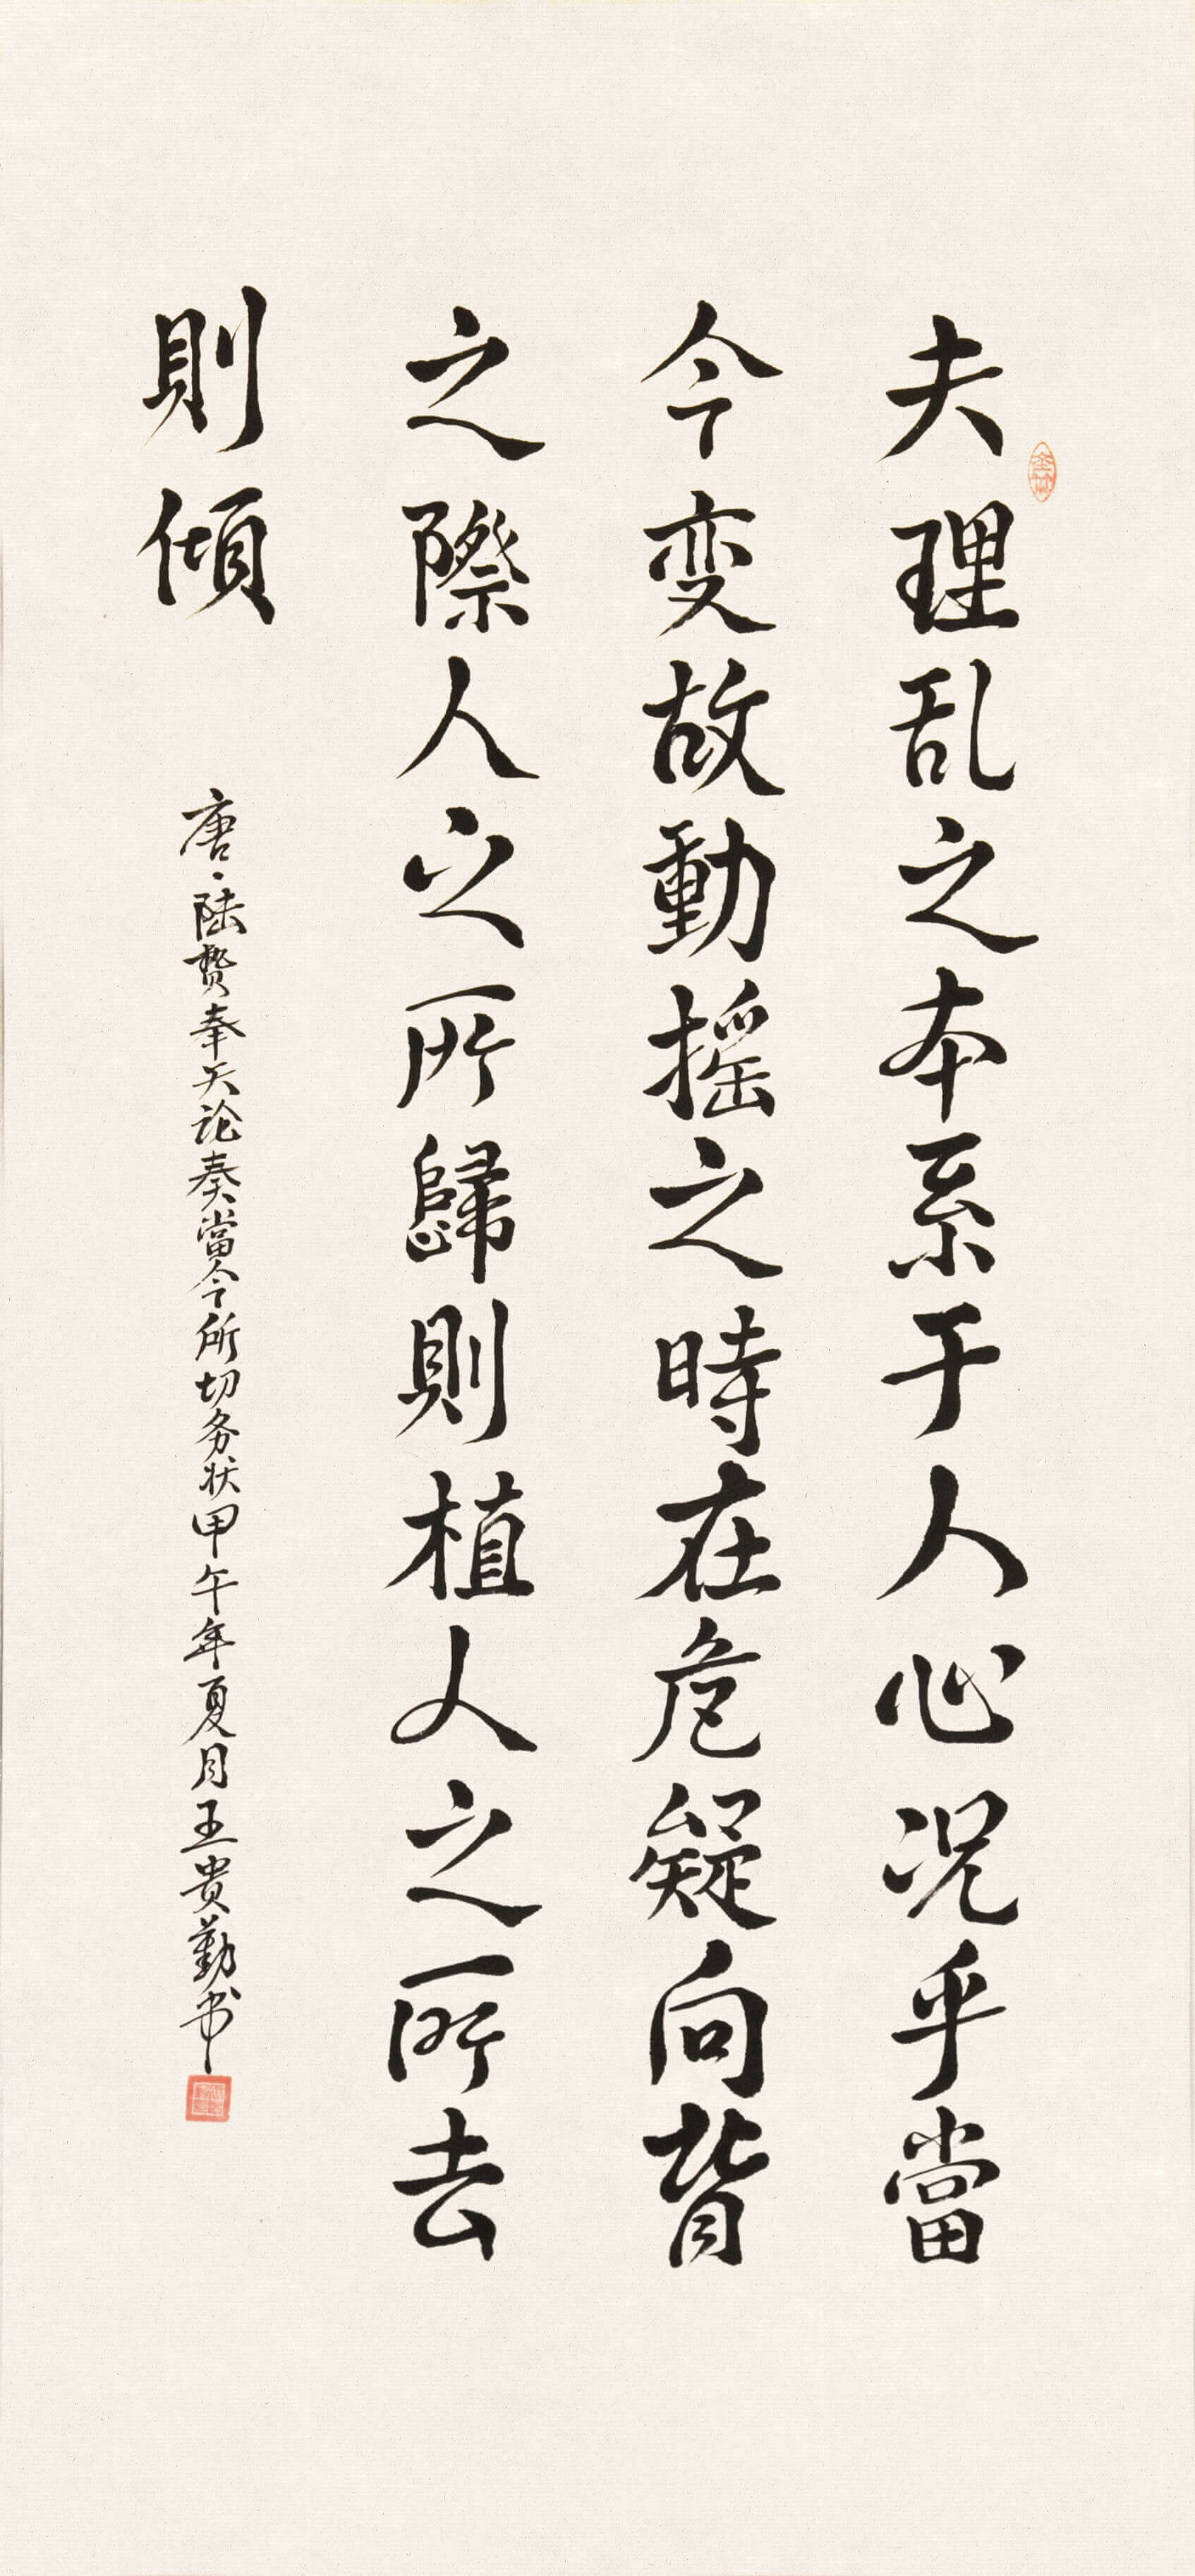 夫理乱之本系于人心况乎當
今変故動摇之時在危疑向背
之際人之所歸則植人之所去
則傾
唐·陆贽奉天论奏當今所切务状甲午年夏月王贵勤书